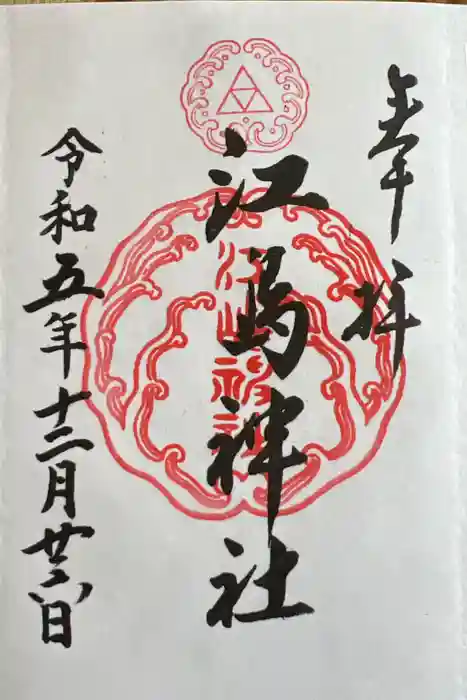 奉拝
江島神社
令和五年十二月廿六日